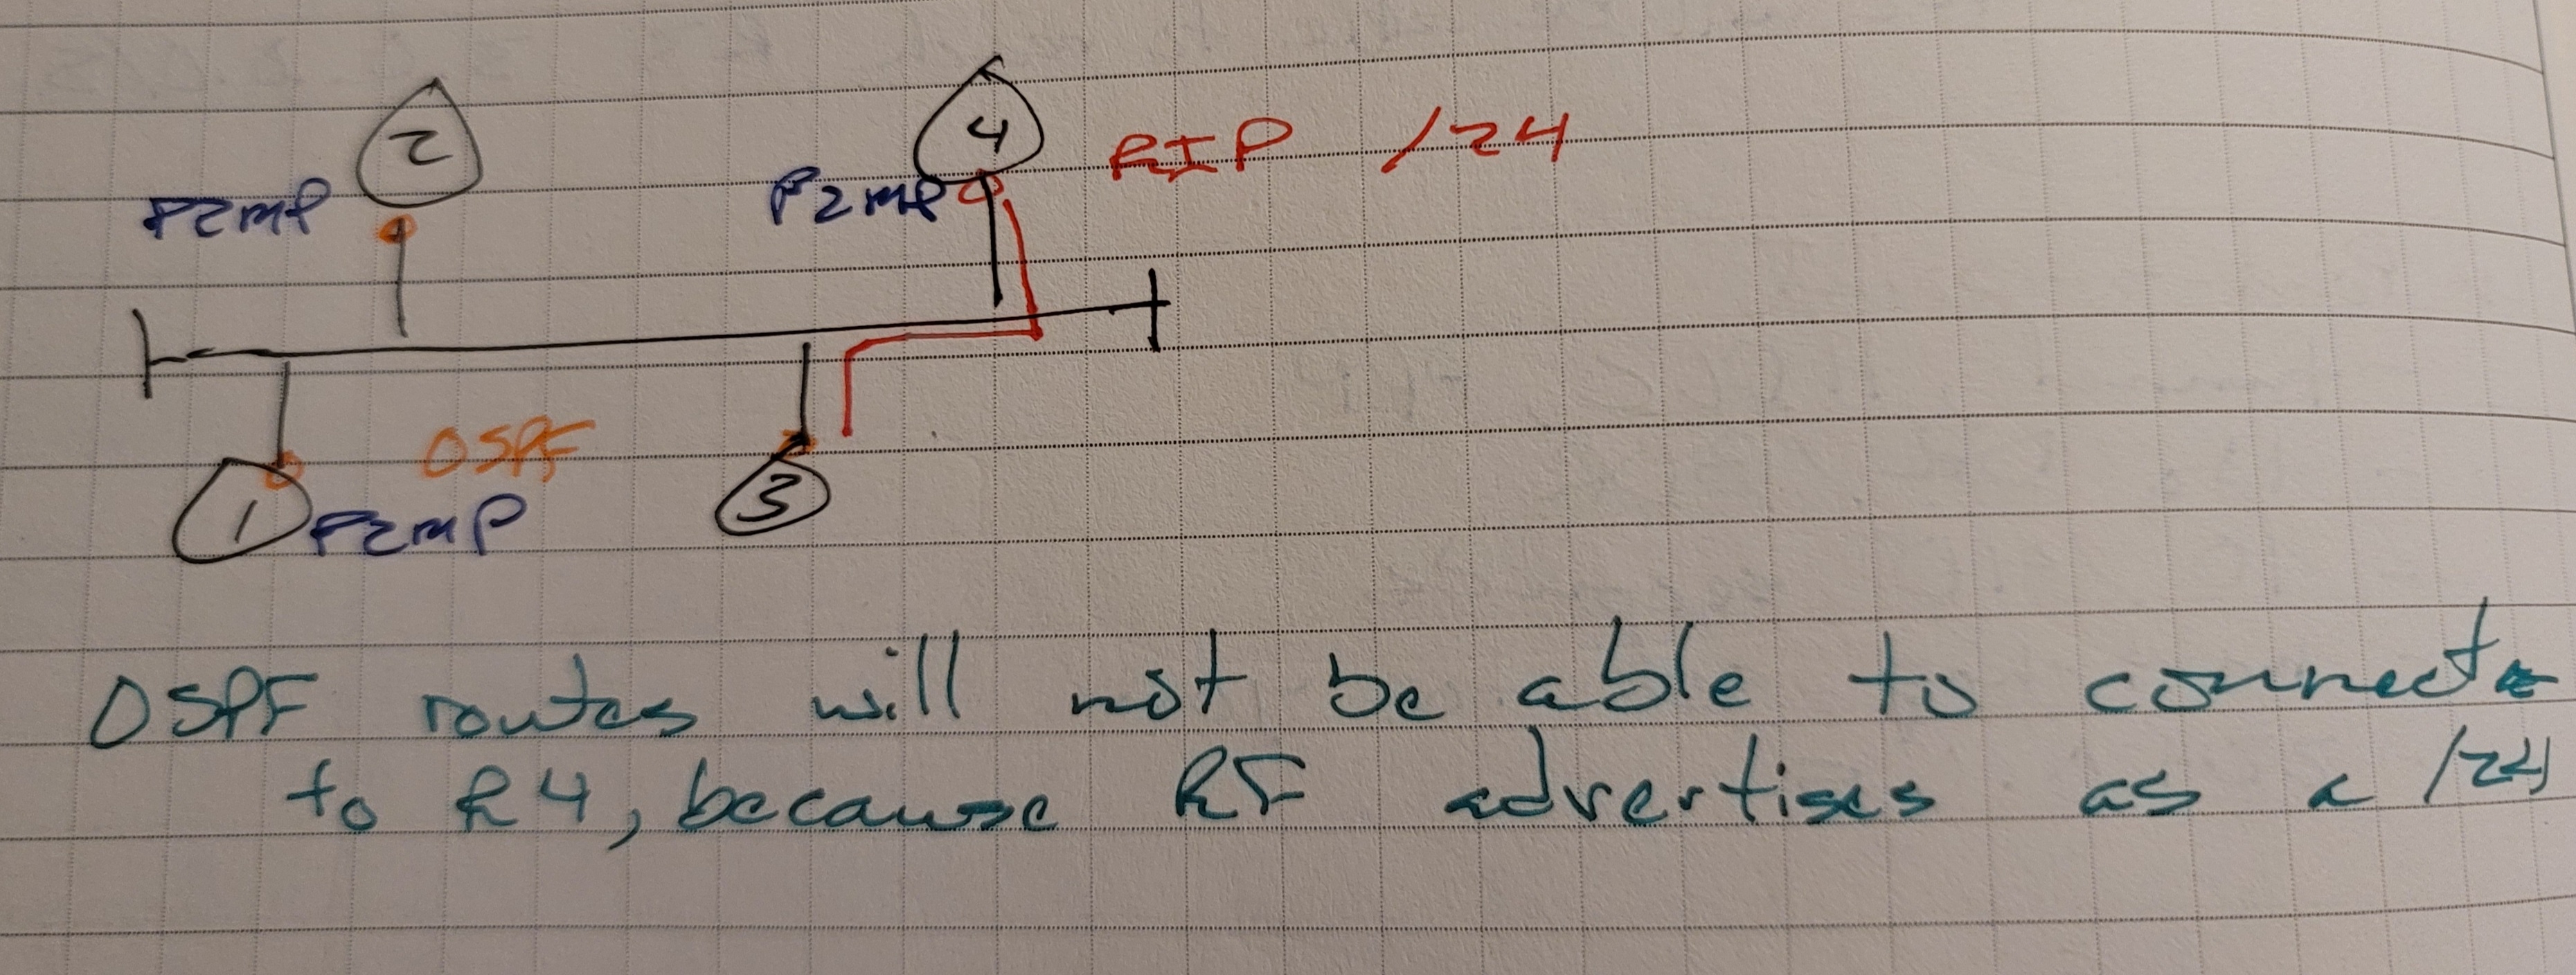 2
4
RIP /24
P2MP
P2MP
OSPF
1
P2MP
3
OSPF routes will not be able to connect
to R4, because RF advertises as a /24